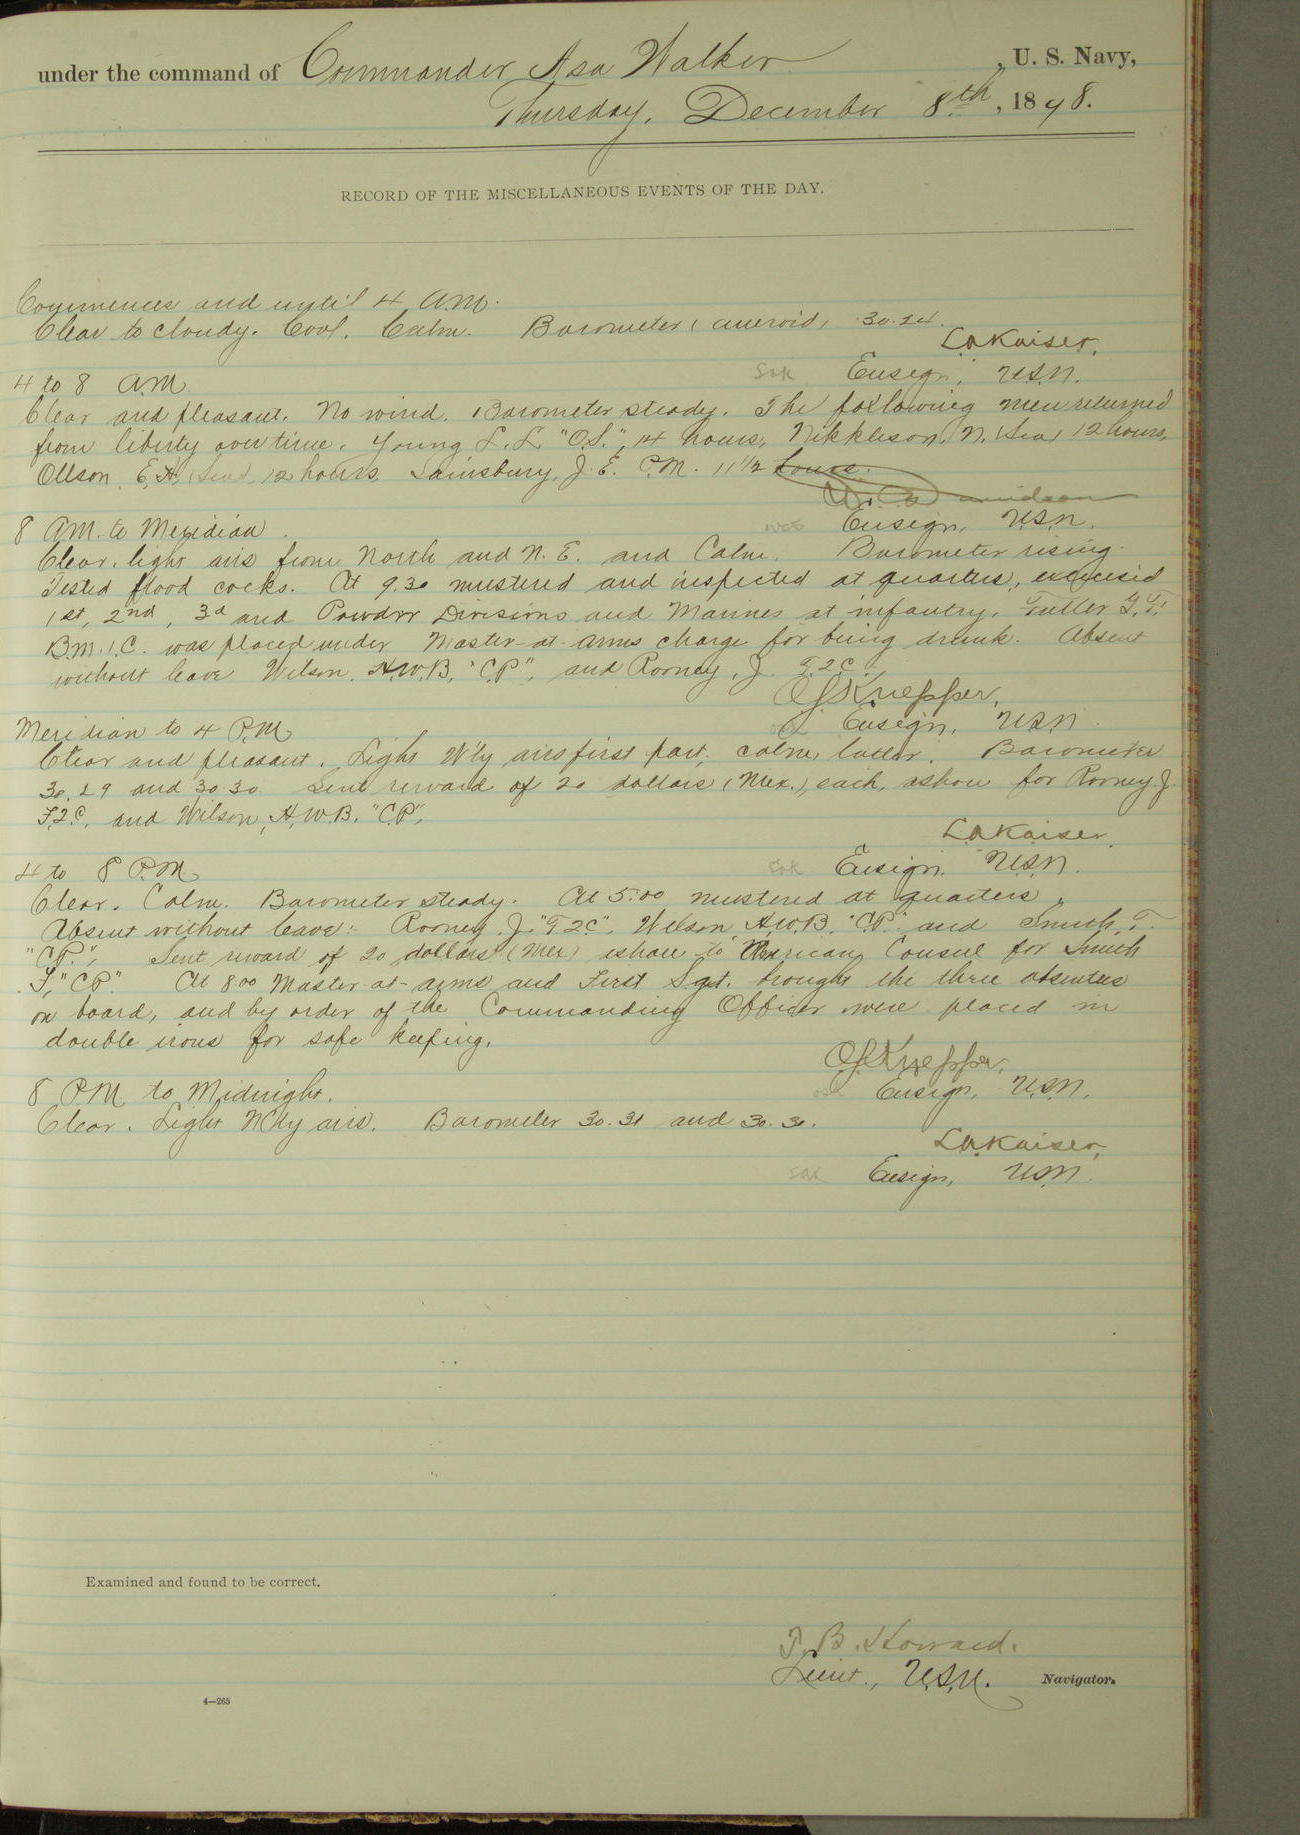 under the command of Commander Asa Walker, U. S. Navy,
Thursday, December 8th, 1898.
RECORD OF THE MISCELLANEOUS EVENTS OF THE DAY.
Commences and until 4 A.M.
Clear to cloudy. Cool. Calm. Barometer, aneroid, 30.24.
L.A. Kaiser,
4 to 8 A.M.
Ensign, U.S.N.
Clear and pleasant. No wind. Barometer steady. The following men returned
from liberty over time. Young L.L. "O.S.", 14 hours, Nikkleson, N. (Sea) 12 hours,
Ollson, E.A. (Sea) 12 hours, Sainsbury, J.E. P.M. 11 1/2 hours.
W. C. Davidson
8 A.M. to Meridian.
Ensign, U.S.N.
Clear, light airs from North and N.E. and Calm. Barometer rising.
Tested flood cocks. At 9.30 mustered and inspected at quarters, exercised
1st, 2nd, 3d and Powder Divisions and Marines at infantry. Tuller G.T.
B.M.1.C. was placed under Master-at-arms charge for being drunk. Absent
without leave Wilson, H.W.B. "C.P.", and Rooney, J. F.2C.
O.S. Knepper,
Meridian to 4 P.M.
Ensign, U.S.N.
Clear and pleasant. Light W'ly airs first part, calm latter. Barometer
30.29 and 30.30. Sent reward of 20 dollars (Mex.), each, ashore for Rooney J.
F.2C. and Wilson, H.W.B. "C.P."
L.A. Kaiser,
4 to 8 P.M.
Ensign, U.S.N.
Clear. Calm. Barometer steady. At 5.00 mustered at quarters.
Absent without leave:- Rooney J. "F.2C", Wilson H.W.B. "C.P." and Smith, F.
"C.P." Sent reward of 20 dollars (Mex) ashore to Mexican Consul for Smith
F. "C.P." At 8.00 Master-at-arms and First Sgt. brought the three absentees
on board, and by order of the Commanding Officer were placed in
double irons for safe keeping.
O.S. Knepper,
8 P.M. to Midnight.
Ensign, U.S.N.
Clear. Light N'ly airs. Barometer 30.31 and 30.30.
L.A. Kaiser,
Ensign, U.S.N.
Examined and found to be correct.
T. B. Howard.
Lieut., U.S.N. Navigator.
4—265